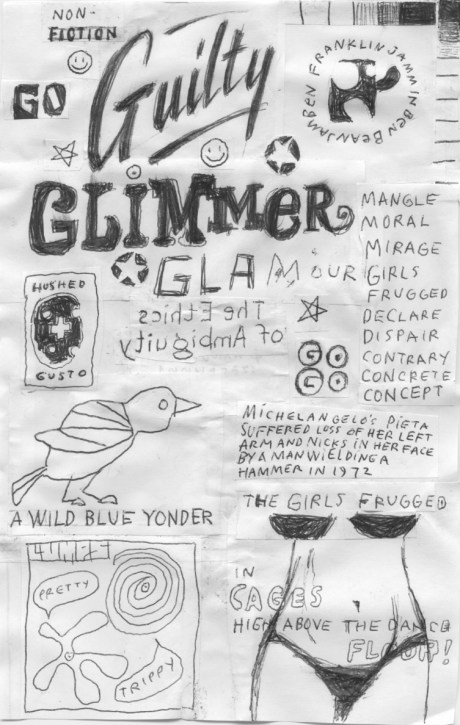 NON-
FICTION
GO
Guilty
BEN FRANKLIN JAMMIN BEN BEAN JAM
GLIMMER
GLAMOUR
MANGLE
MORAL
MIRAGE
GIRLS
FRUGGED
DECLARE
DISPAIR
CONTRARY
CONCRETE
CONCEPT
HUSHED
GUSTO
The Ethics
of Ambiguity
GO
GO
MICHELANGELO'S PIETA
SUFFERED LOSS OF HER LEFT
ARM AND NICKS IN HER FACE
BY A MAN WIELDING A
HAMMER IN 1972
A WILD BLUE YONDER
THE GIRLS FRUGGED
IN
CAGES
HIGH ABOVE THE DANCE
FLOOR!
PRETTY
TRIPPY